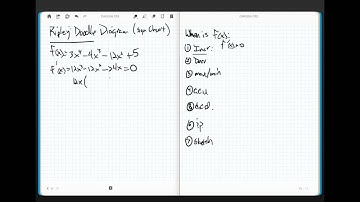 Ripley Doodle Diagram (sign chart)
f(x)=3x⁴-4x³-12x²+5
f'(x)=12x³-12x²-24x=0
12x(
When is f(x):
① Incr: f'(x)>0
② Decr
③ max/min
④ ccu
⑤ ccd
⑥ ip
⑦ sketch